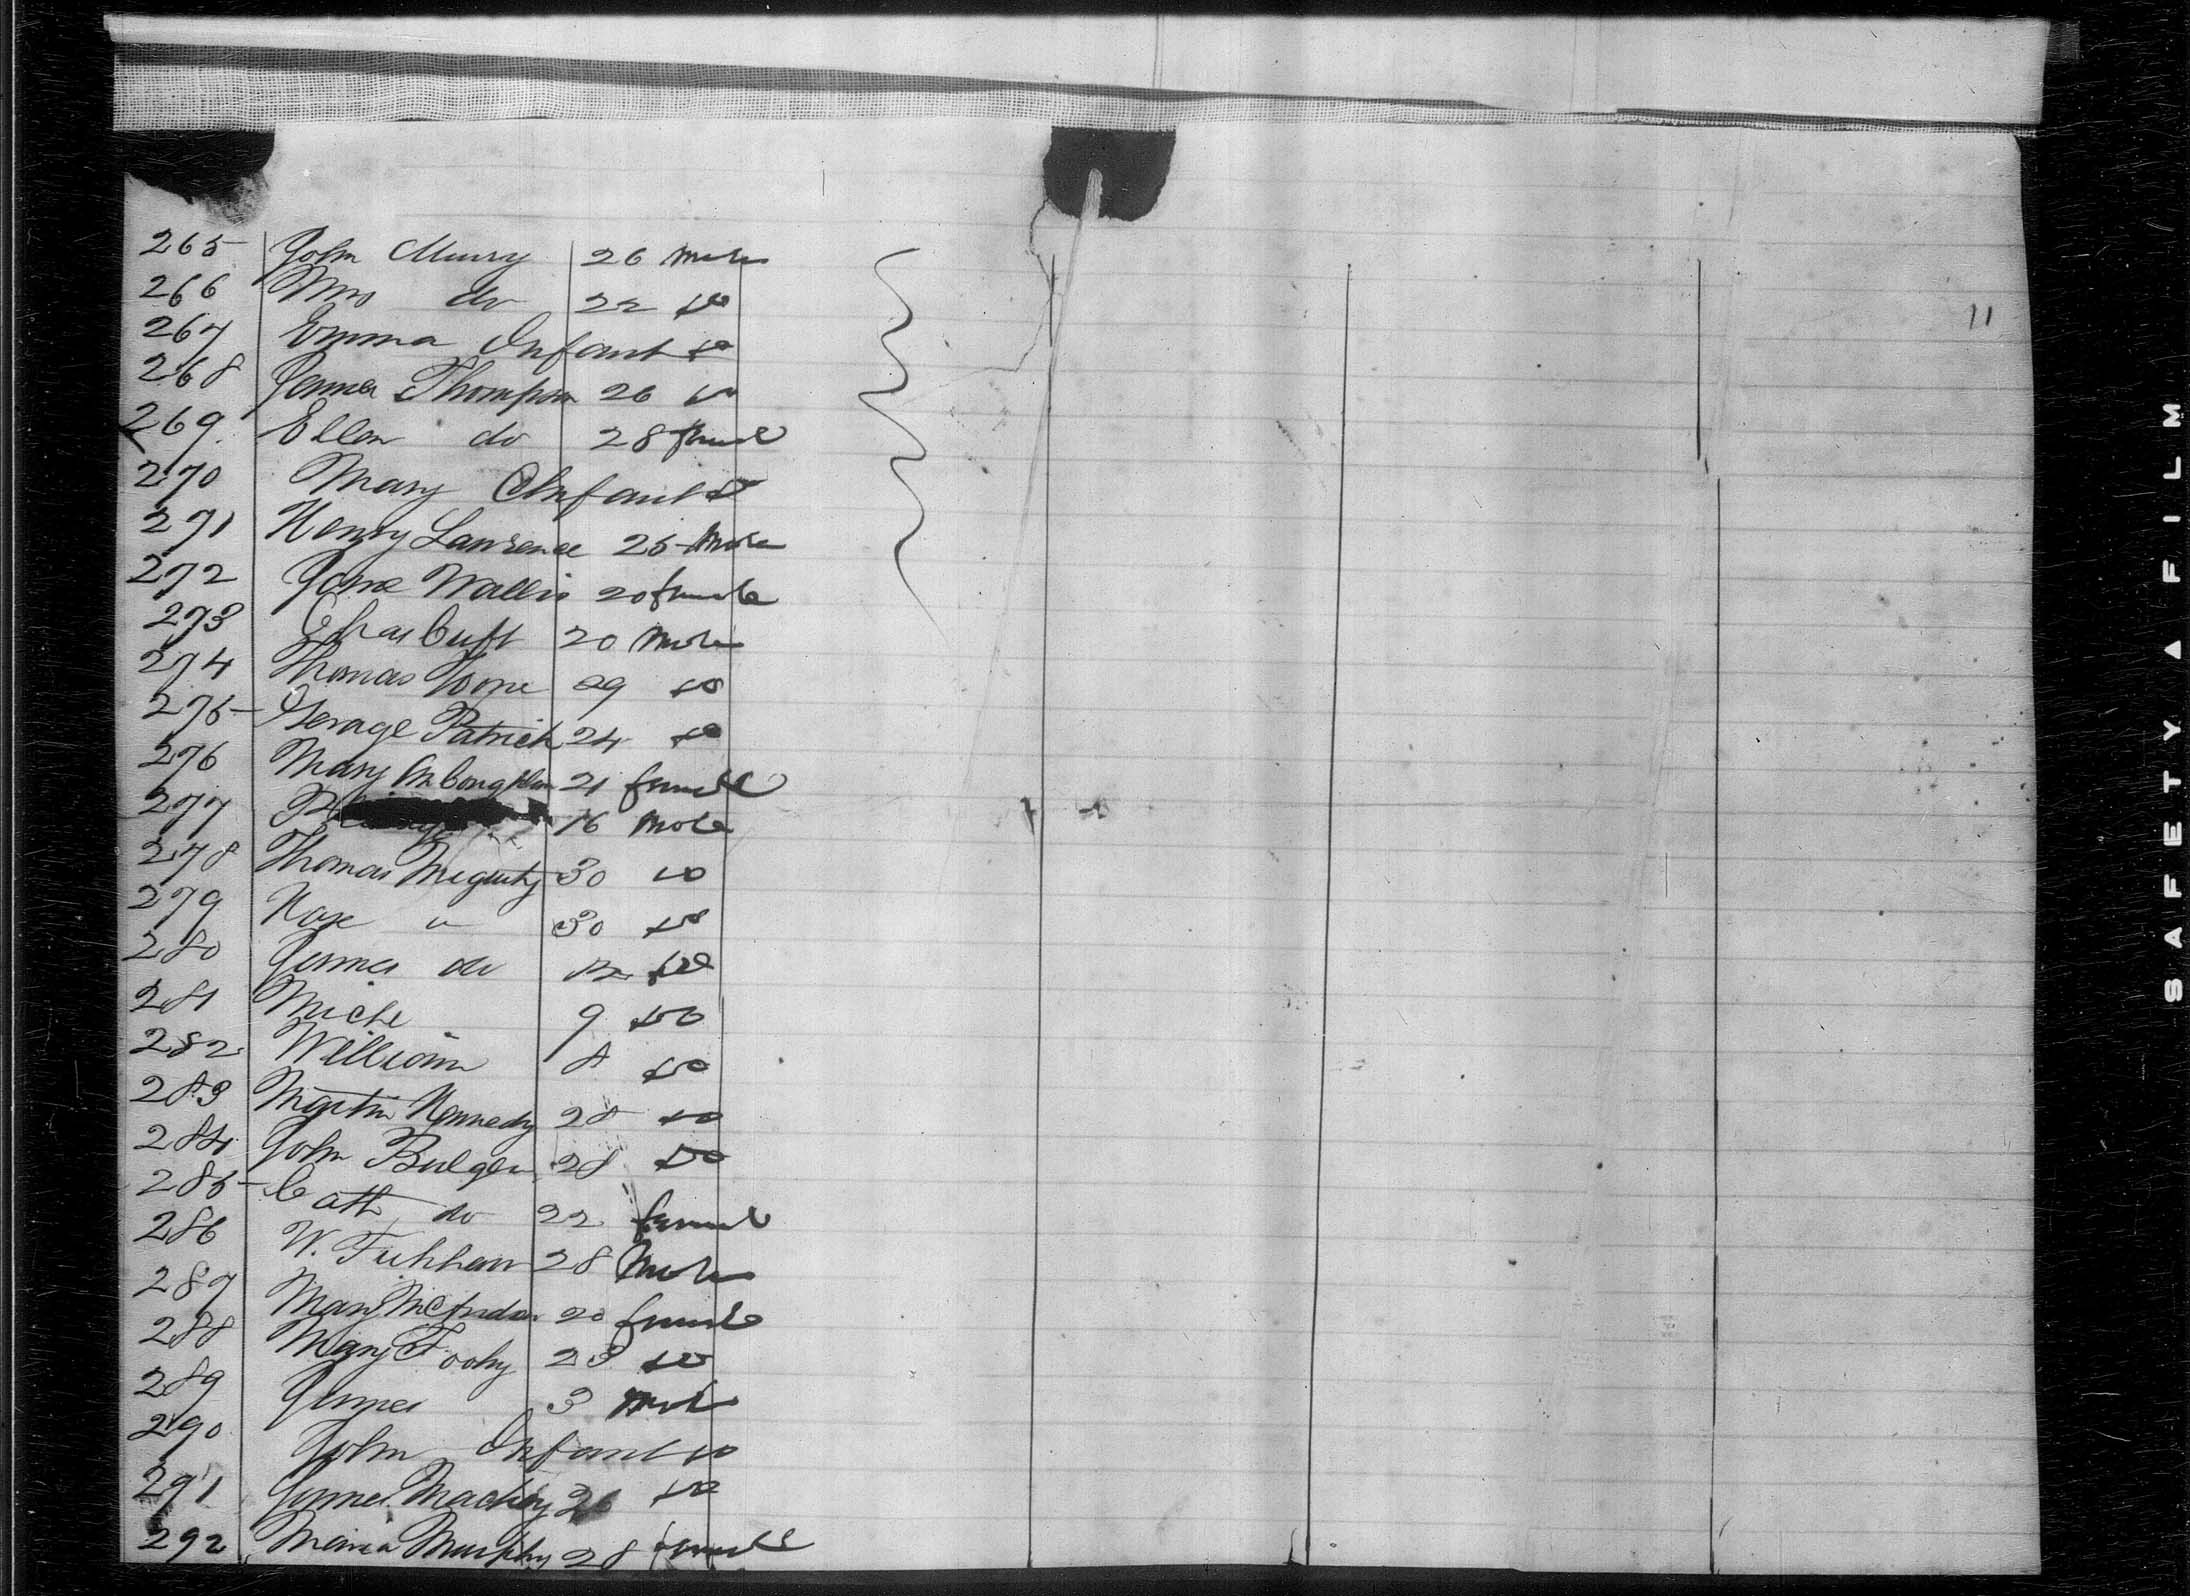 265 John Murry 26 male
266 Mrs do 22 do
267 Emma Infant do
268 James Thompson 26 do
269 Ellen do 28 female
270 Mary Infant do
271 Henry Lawrence 25 male
272 Jane Wallis 20 female
273 Chas Cuft 20 male
274 Thomas 29 do
275 George Patrick 24 do
276 Mary 21 female
277 16 male
278 Thomas 30 do
279 30 do
280 James do 12 do
281 Miche 9 do
282 William 8 do
283 Martin Kennedy 28 do
284 John Bulger 28 do
285 Cath do 22 female
286 W. 28 male
287 Mary 20 female
288 Mary Foohy 23 do
289 James 3 male
290 John Infant do
291 James Mackey 26 do
292 Maria Murphy 28 female
11
SAFETY A FILM